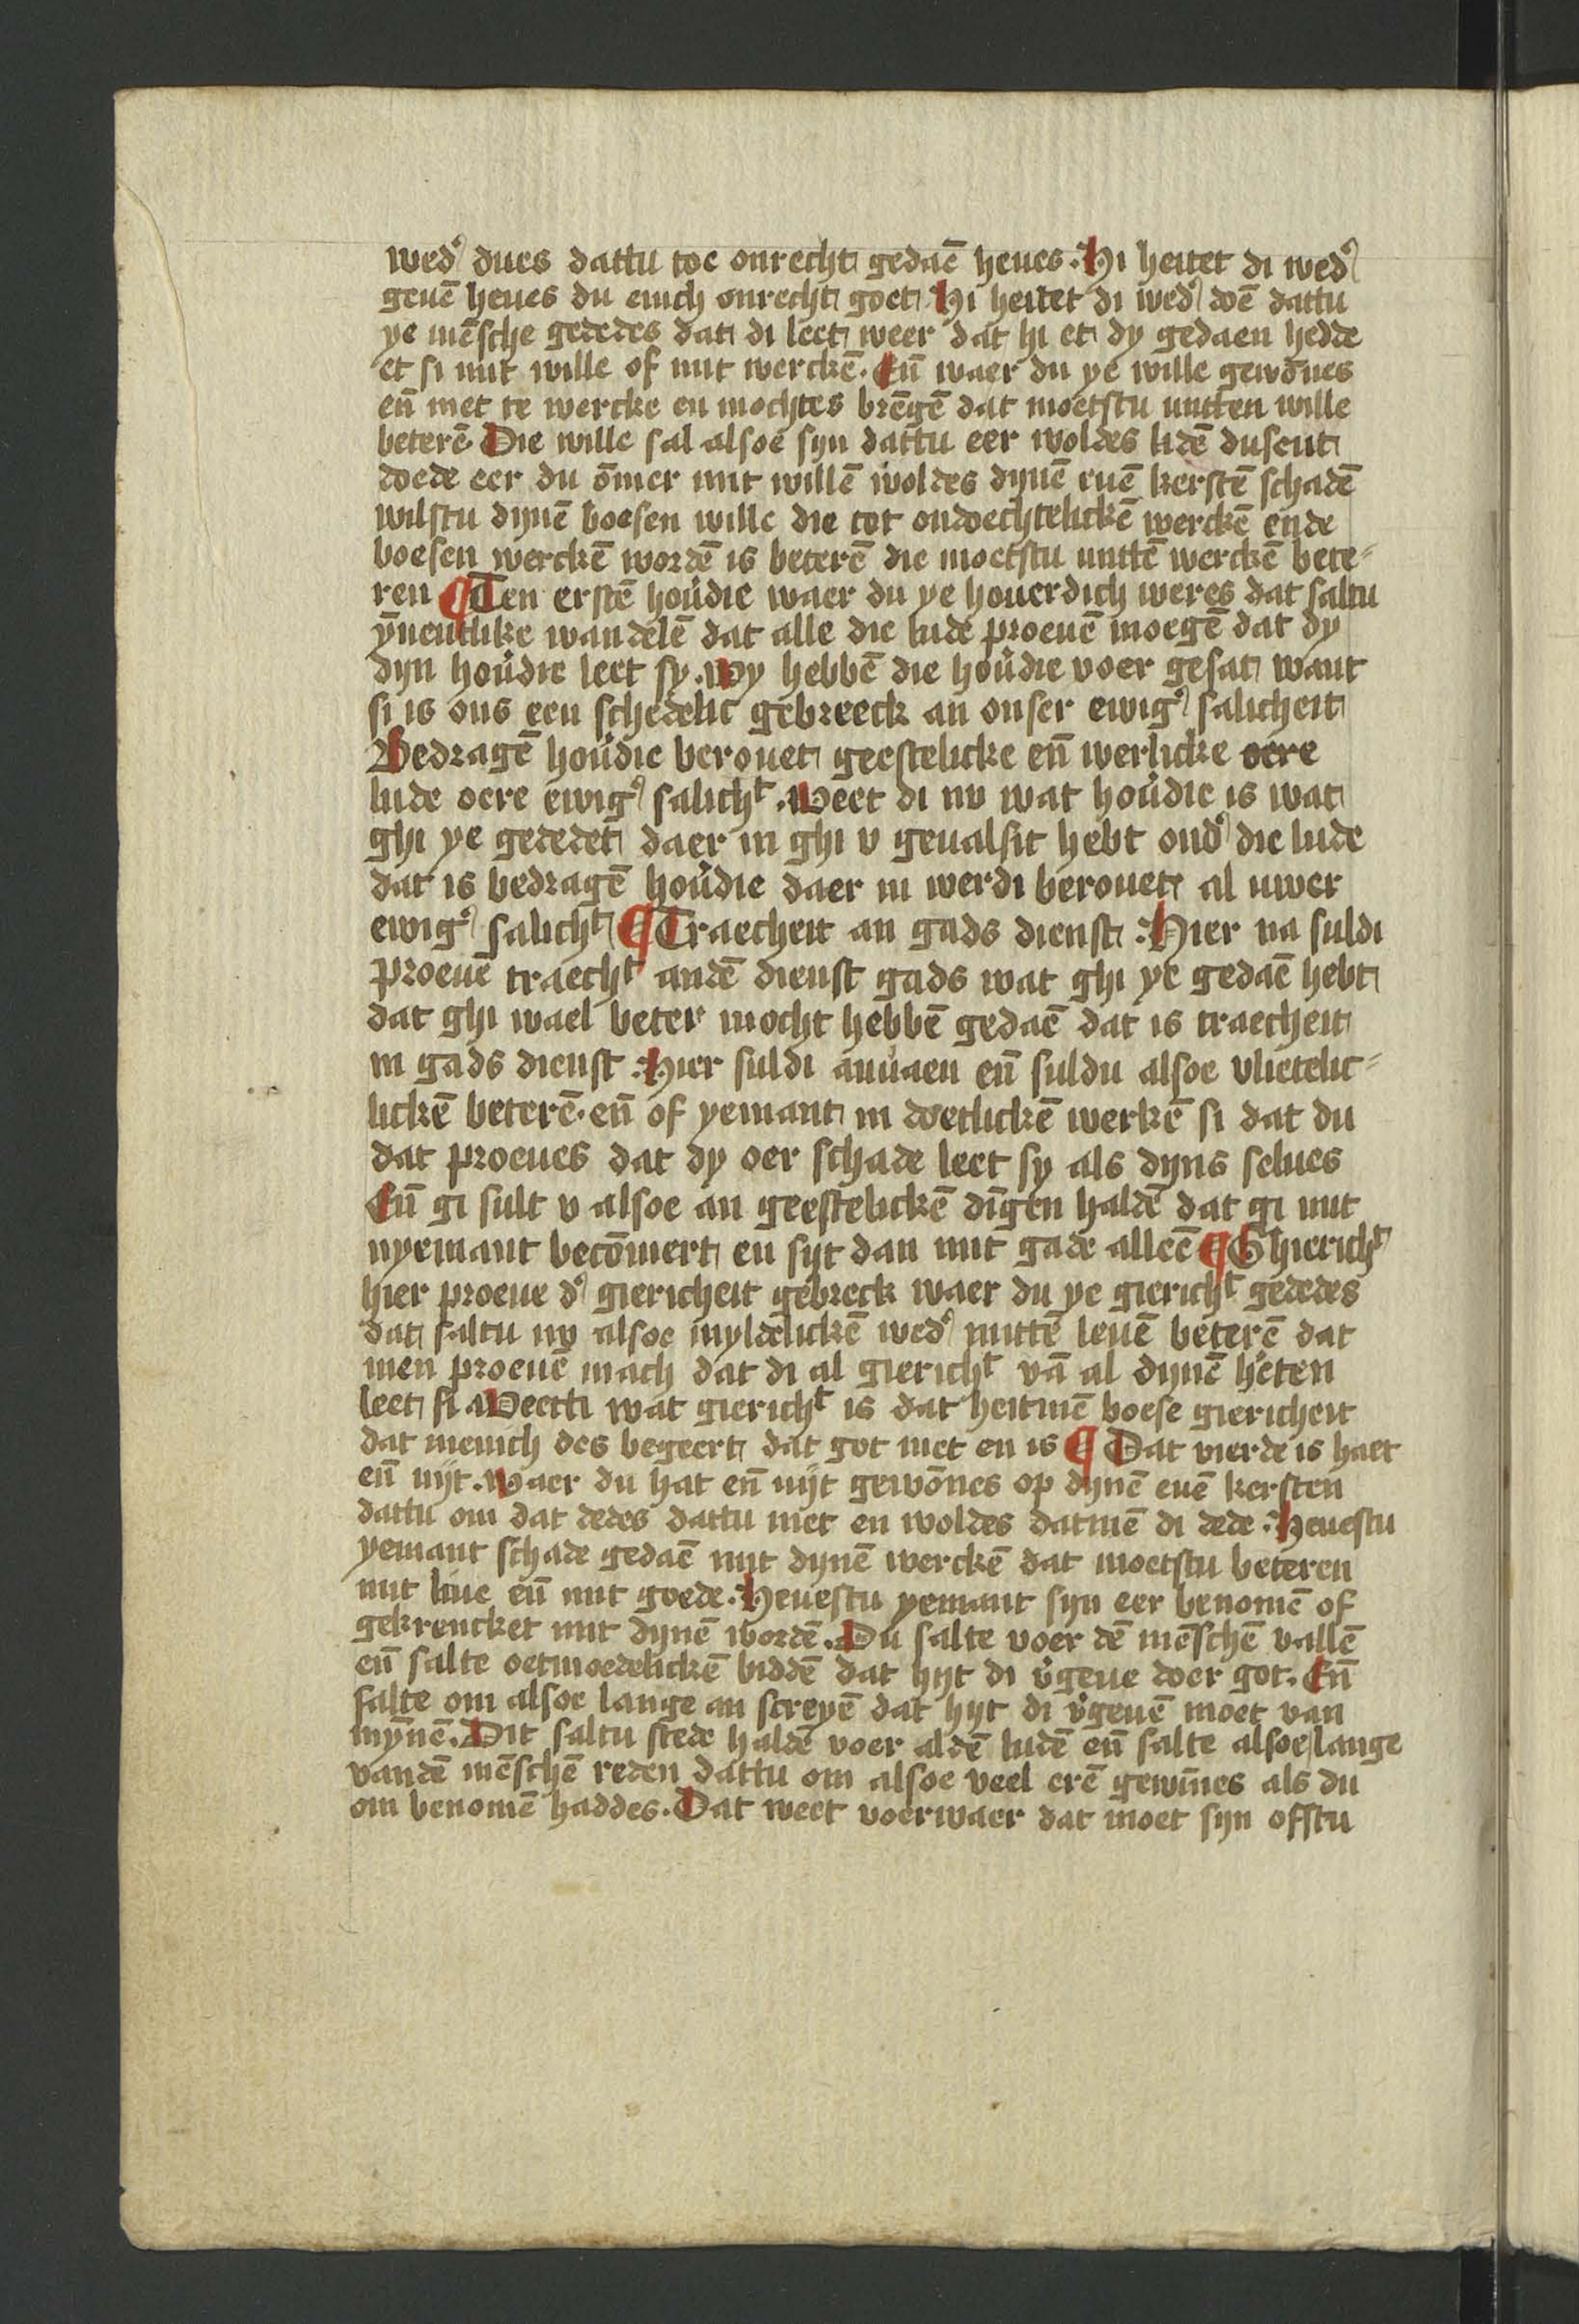 wed᷒ dues dattu toe onrecht gedaē heues. Hi heitet di wed᷒
geuē heues du enich onrecht goet Hi heitet di wed᷒ doē dattu
ye mēsche gededes dat di leet weer dat hi et dy gedaen hedde
et si mit wille of mit werckē. Eñ waer du ye wille gewōnes
eñ met te wercke en mochtes brēgē dat moetstu mitten wille
beterē. Die wille sal alsoe syn dattu eer woldes lidē dusent
doede eer du ōmer mit willē woldes dynē euē kerstē schadē
wilstu dynē boesen wille die tot ondoechtelickē werckē ende
boesen werckē wordē is beterē die moetstu mittē werckē bete⸗
ren ¶ Ten erstē hou᷒die waer du ye houerdich weres dat saltu
ȳnentlike wandelē dat alle die lude proeuē moegē dat dy
dyn hou᷒die leet sy. Wy hebbē die hou᷒die voer gesat want
si is ons een schedelic gebreeck an onser ewig᷒ salicheit
Bedragē hou᷒die berouet geestelicke eñ werlicke oere
lude oere ewig᷒ salichᵗ. Weet di nv wat hou᷒die is wat
ghi ye gededet daer in ghi v geualsit hebt ond᷒ die lude
dat is bedragē hou᷒die daer in werdi berouet al uwer
ewig᷒ salichᵗ ¶ Traecheit an gads dienst. Hier na suldi
proeuē traechᵗ andē dienst gads wat ghi ye gedaē hebt
dat ghi wael beter mocht hebbē gedaē dat is traecheit
in gads dienst. Hier suldi anuaen eñ suldu alsoe vlietelic⸗
lickē beterē. eñ of yemant in doetlickē werkē si dat du
dat proeues dat dy oer schade leet sy als dyns selues
Eñ gi sult v alsoe an geestelickē dīgen haldē dat gi mit
nyemant becōmert en syt dan mit gade alleē ¶ Ghierichᵗ
hier proeue d᷒ giericheit gebreck waer du ye gierichᵗ gededes
dat saltu nv alsoe myldelickē wed᷒ mittē leuē beterē dat
men proeuē mach dat di al gierichᵗ vā al dynē h᷒ten
leet si Weetti wat gierichᵗ is dat heitmē boese giericheit
dat menich des begeert dat got niet en is ¶ Dat vierde is haet
eñ nyt. Waer du hat eñ nyt gewōnes op dynē euē kersten
dattu om dat dedes dattu niet en woldes datmē di dede. Heuestu
yemant schade gedaē mit dynē werckē dat moetstu beteren
mit liue eñ mit goede. Heuestu yemant syn eer benomē of
gekrencket mit dynē wordē. Du salte voer dē mēschē vallē
eñ salte oetmoedelickē biddē dat hyt di v᷒geue doer got. Eñ
salte om alsoe lange an screyē dat hyt di v᷒geuē moet van
mȳnē. Dit saltu stede haldē voer aldē ludē eñ salte alsoe lange
vandē mēschē reden dattu om alsoe veel erē gewīnes als du
om benomē haddes. Dat weet voerwaer dat moet syn ofstu